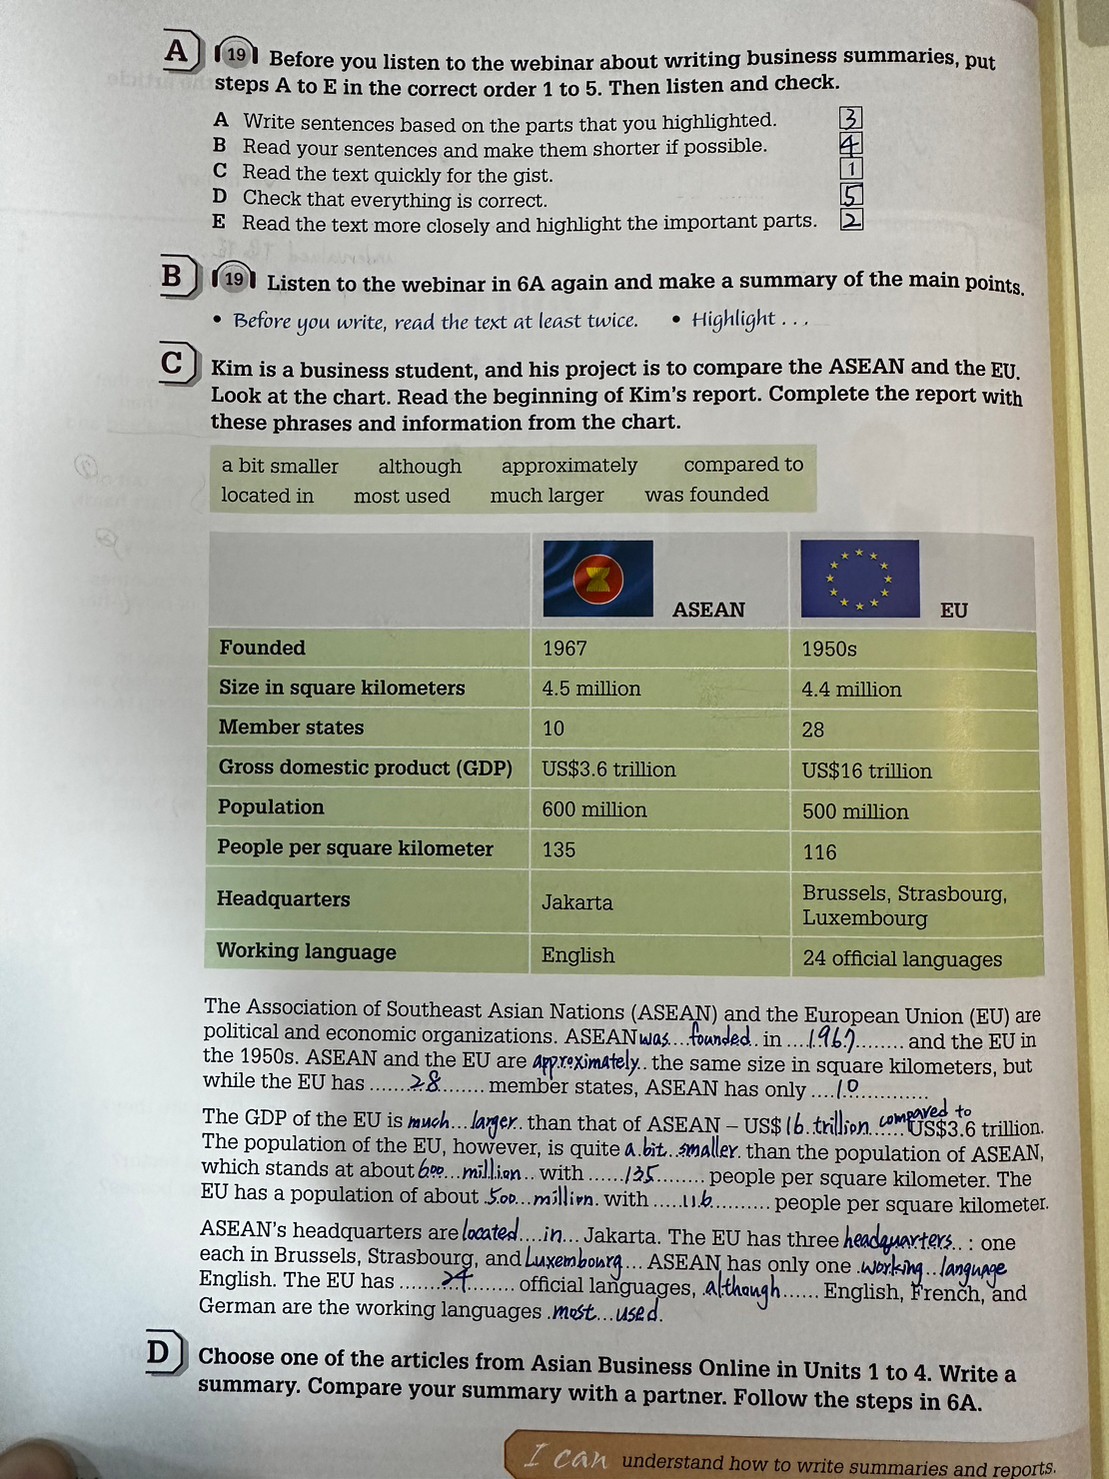 A 19 Before you listen to the webinar about writing business summaries, put
steps A to E in the correct order 1 to 5. Then listen and check.
A Write sentences based on the parts that you highlighted. 3
B Read your sentences and make them shorter if possible. 4
C Read the text quickly for the gist. 1
D Check that everything is correct. 5
E Read the text more closely and highlight the important parts. 2
B 19 Listen to the webinar in 6A again and make a summary of the main points.
• Before you write, read the text at least twice. • Highlight . . .
C Kim is a business student, and his project is to compare the ASEAN and the EU.
Look at the chart. Read the beginning of Kim's report. Complete the report with
these phrases and information from the chart.
a bit smaller although approximately compared to
located in most used much larger was founded
ASEAN EU
Founded 1967 1950s
Size in square kilometers 4.5 million 4.4 million
Member states 10 28
Gross domestic product (GDP) US$3.6 trillion US$16 trillion
Population 600 million 500 million
People per square kilometer 135 116
Headquarters Jakarta Brussels, Strasbourg,
Luxembourg
Working language English 24 official languages
The Association of Southeast Asian Nations (ASEAN) and the European Union (EU) are
political and economic organizations. ASEAN was founded in 1967 and the EU in
the 1950s. ASEAN and the EU are approximately the same size in square kilometers, but
while the EU has 28 member states, ASEAN has only 10
The GDP of the EU is much larger than that of ASEAN – US$ 16 trillion compared to US$3.6 trillion.
The population of the EU, however, is quite a bit smaller than the population of ASEAN,
which stands at about 600 million with 135 people per square kilometer. The
EU has a population of about 500 million with 116 people per square kilometer.
ASEAN's headquarters are located in Jakarta. The EU has three headquarters : one
each in Brussels, Strasbourg, and Luxembourg ASEAN has only one working language
English. The EU has 24 official languages, although English, French, and
German are the working languages most used.
D Choose one of the articles from Asian Business Online in Units 1 to 4. Write a
summary. Compare your summary with a partner. Follow the steps in 6A.
I can understand how to write summaries and reports.